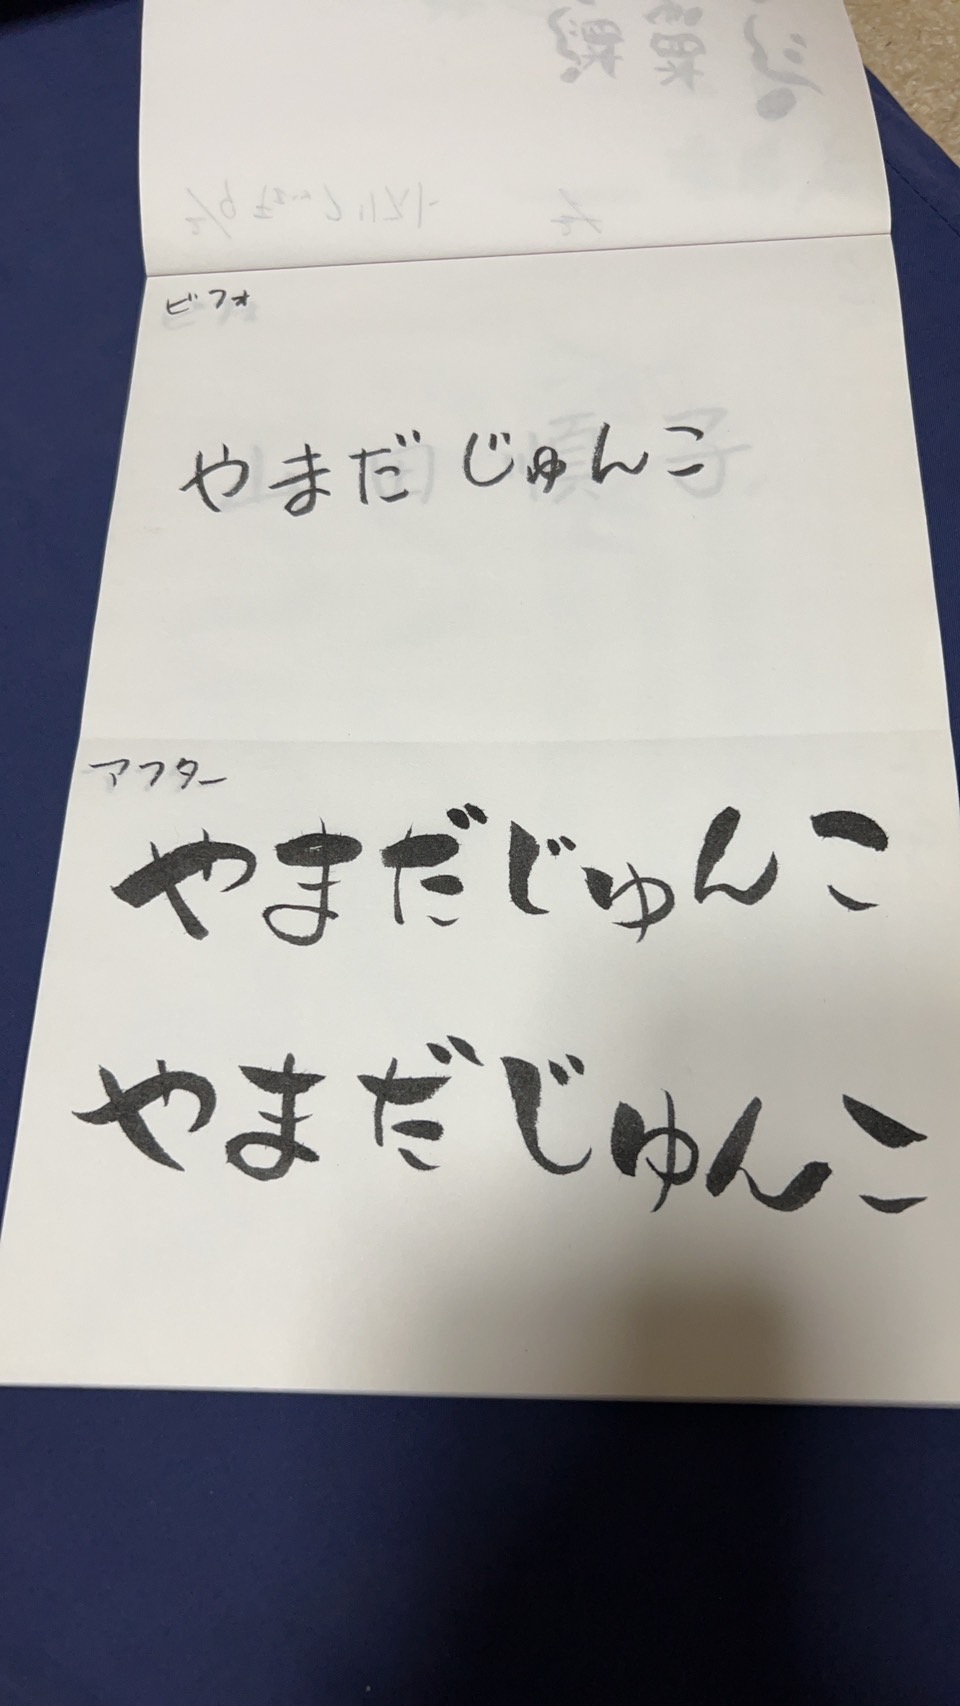 ビフォ
やまだ じゅんこ
アフター
やまだじゅんこ
やまだじゅんこ